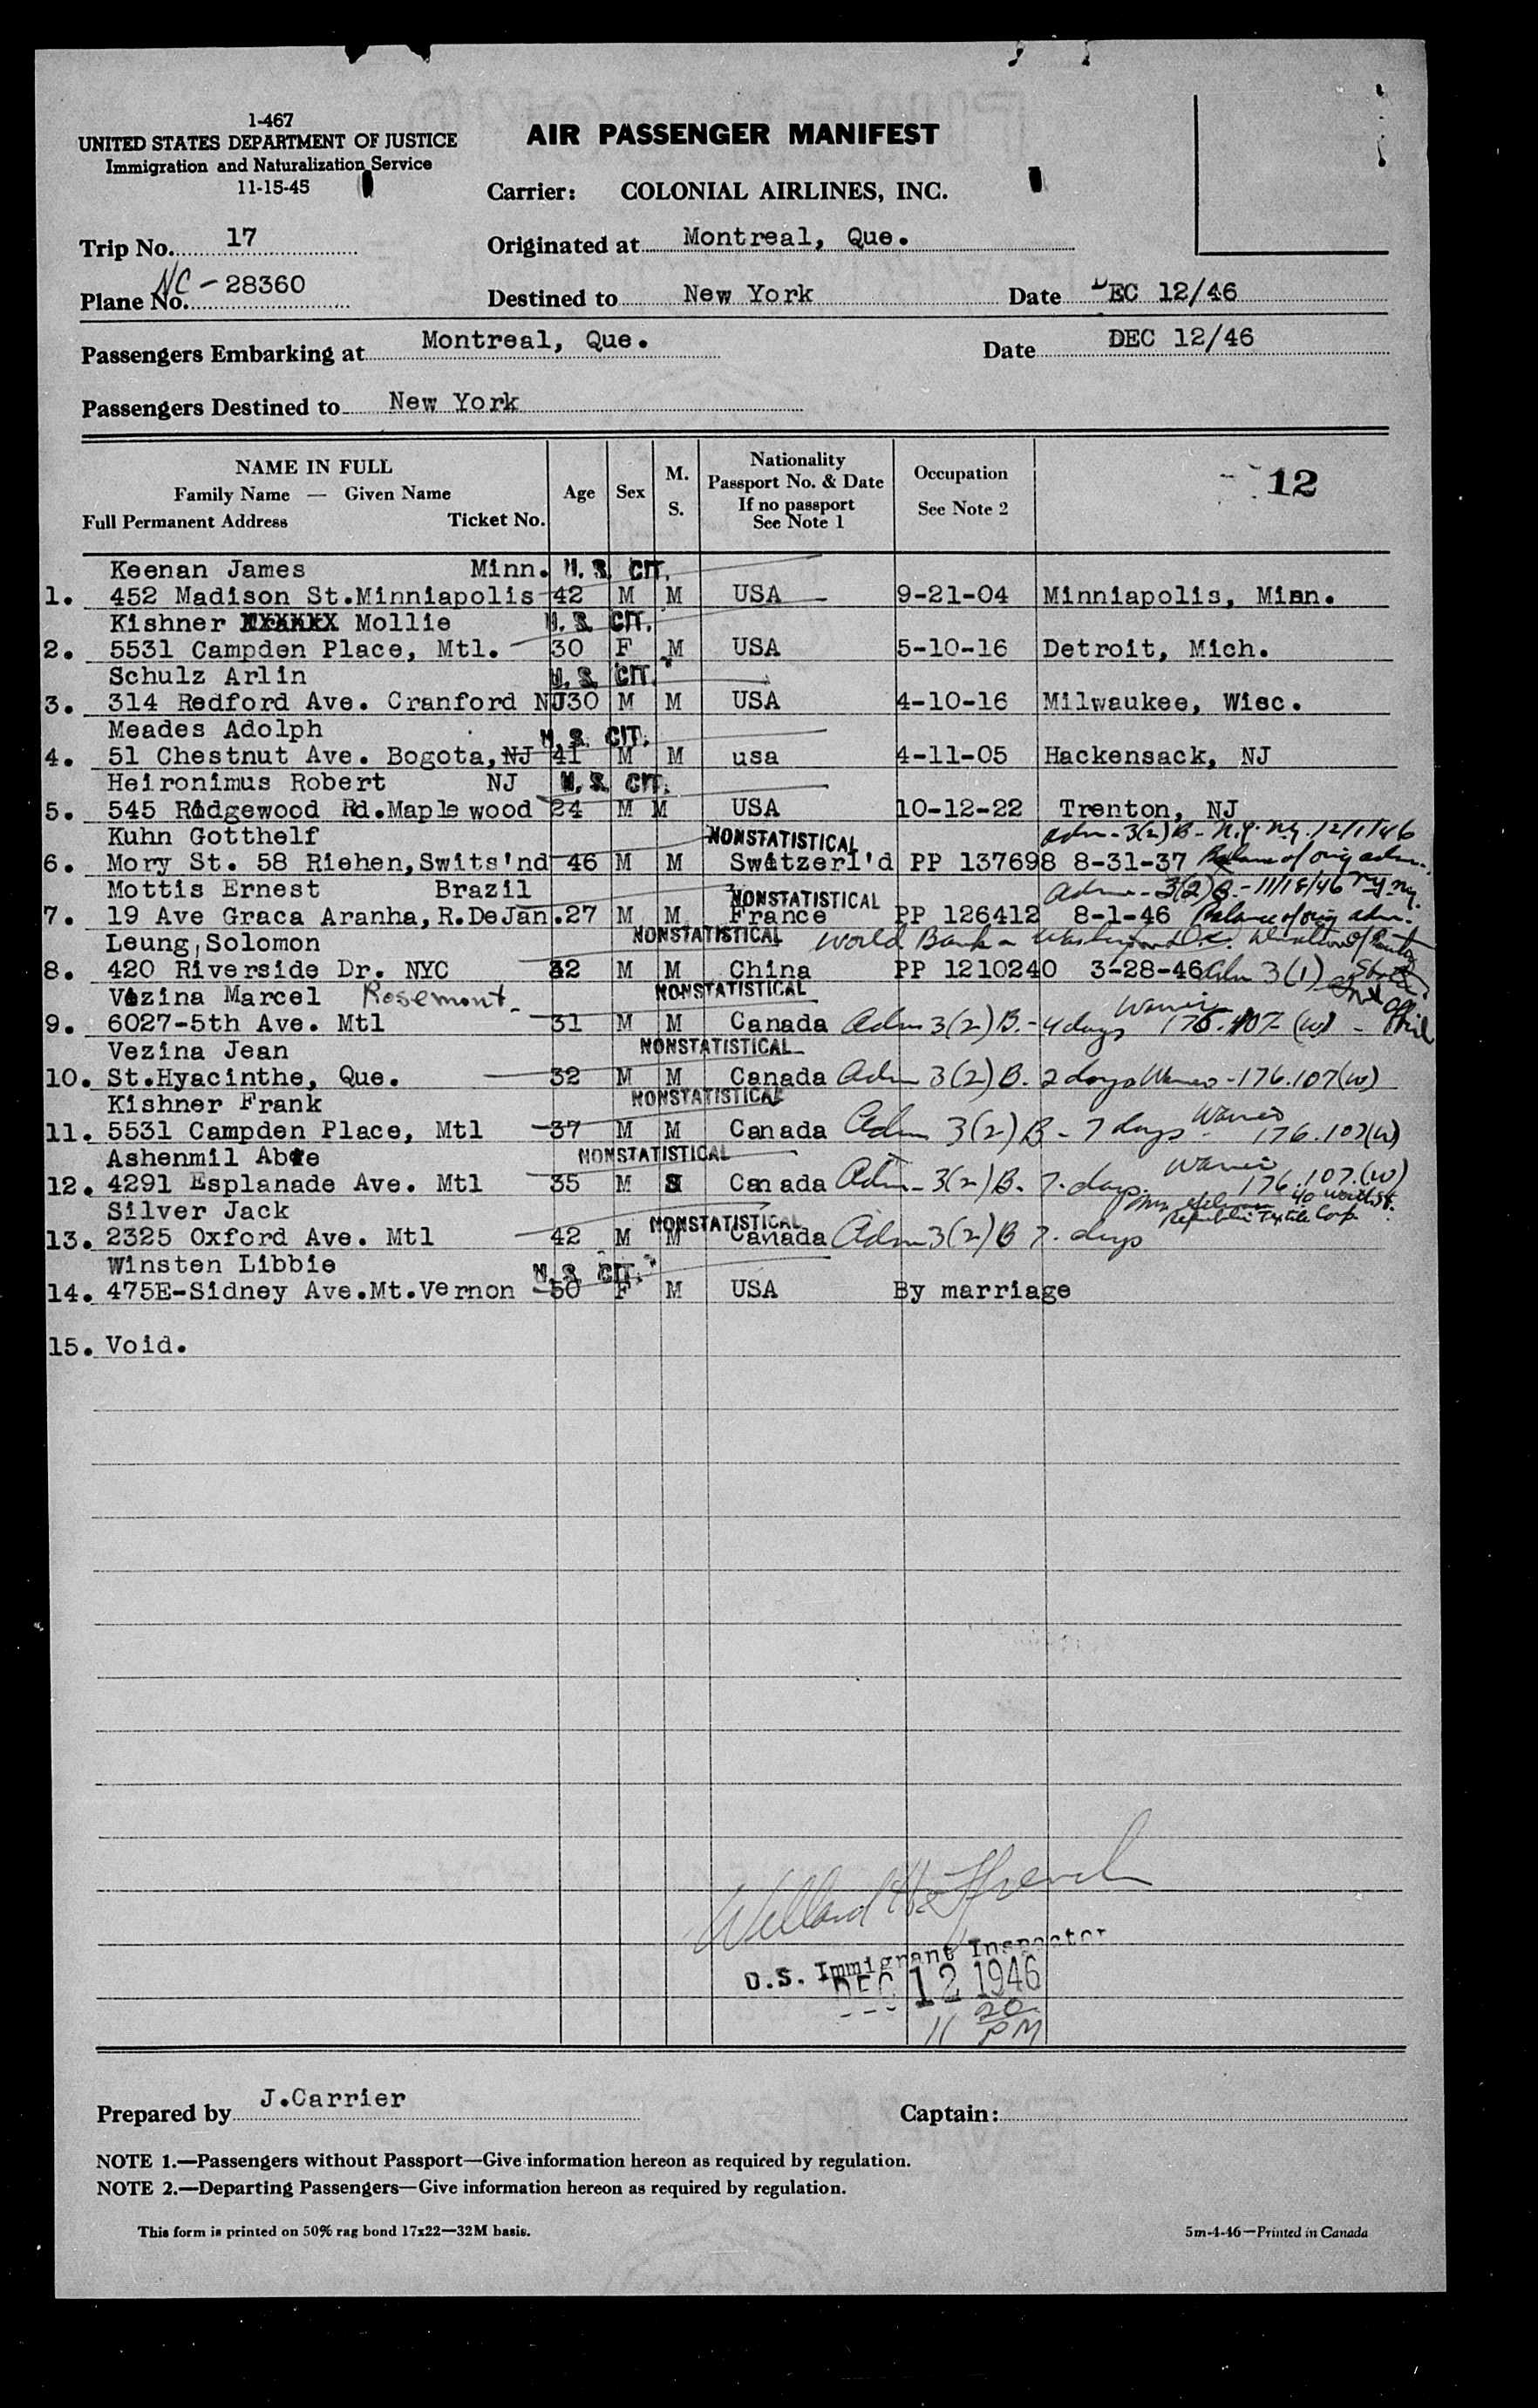 1-467
UNITED STATES DEPARTMENT OF JUSTICE
Immigration and Naturalization Service
11-15-45
AIR PASSENGER MANIFEST
Carrier: COLONIAL AIRLINES, INC.
Trip No. 17
Originated at Montreal, Que.
Plane No. NC-28360
Destined to New York Date DEC 12/46
Passengers Embarking at Montreal, Que. Date DEC 12/46
Passengers Destined to New York
NAME IN FULL
Family Name — Given Name
Full Permanent Address Ticket No.
Age Sex M. S.
Nationality
Passport No. & Date
If no passport
See Note 1
Occupation
See Note 2
12
Keenan James Minn. U. S. CIT.
1. 452 Madison St.Minniapolis 42 M M USA 9-21-04 Minniapolis, Minn.
Kishner Mollie U. S. CIT.
2. 5531 Campden Place, Mtl. 30 F M USA 5-10-16 Detroit, Mich.
Schulz Arlin U. S. CIT.
3. 314 Redford Ave. Cranford NJ 30 M M USA 4-10-16 Milwaukee, Wisc.
Meades Adolph U. S. CIT.
4. 51 Chestnut Ave. Bogota, NJ 41 M M usa 4-11-05 Hackensack, NJ
Heironimus Robert NJ U. S. CIT.
5. 545 Ridgewood Rd.Maplewood 24 M M USA 10-12-22 Trenton, NJ
Kuhn Gotthelf NONSTATISTICAL Adm-3(2)B- N.Y. N.Y. 12/1/46
6. Mory St. 58 Riehen,Swits'nd 46 M M Switzerl'd PP 137698 8-31-37 Balance of orig adm.
Mottis Ernest Brazil NONSTATISTICAL Adm-3(2)B-11/18/46 NY NY.
7. 19 Ave Graca Aranha,R.DeJan.27 M M France PP 126412 8-1-46 Balance of orig adm.
Leung Solomon NONSTATISTICAL World Bank- Washington D.C.
8. 420 Riverside Dr. NYC 32 M M China PP 1210240 3-28-46 Adm 3(1)
Vezina Marcel Rosemont- NONSTATISTICAL
9. 6027-5th Ave. Mtl 31 M M Canada Adm 3(2)B.-4 days Waiver 176.107 (w)
Vezina Jean NONSTATISTICAL
10. St.Hyacinthe, Que. 32 M M Canada Adm 3(2)B. 2 days Waiver-176.107(w)
Kishner Frank NONSTATISTICAL
11. 5531 Campden Place, Mtl 37 M M Canada Adm 3(2)B-7 days Waiver 176.107(w)
Ashenmil Abie NONSTATISTICAL
12. 4291 Esplanade Ave. Mtl 35 M S Canada Adm-3(2)B. 7. days. Waiver 176.107.(w)
Silver Jack NONSTATISTICAL 40 Worth St. Republic Textile Corp.
13. 2325 Oxford Ave. Mtl 42 M M Canada Adm 3(2)B 7. days
Winsten Libbie U. S. CIT.
14. 475E-Sidney Ave.Mt.Vernon 50 F M USA By marriage
15. Void.
U.S. Immigrant Inspector
DEC 12 1946
11 20 PM
Prepared by J.Carrier
Captain:
NOTE 1.—Passengers without Passport—Give information hereon as required by regulation.
NOTE 2.—Departing Passengers—Give information hereon as required by regulation.
This form is printed on 50% rag bond 17x22—32M basis.
5m-4-46—Printed in Canada